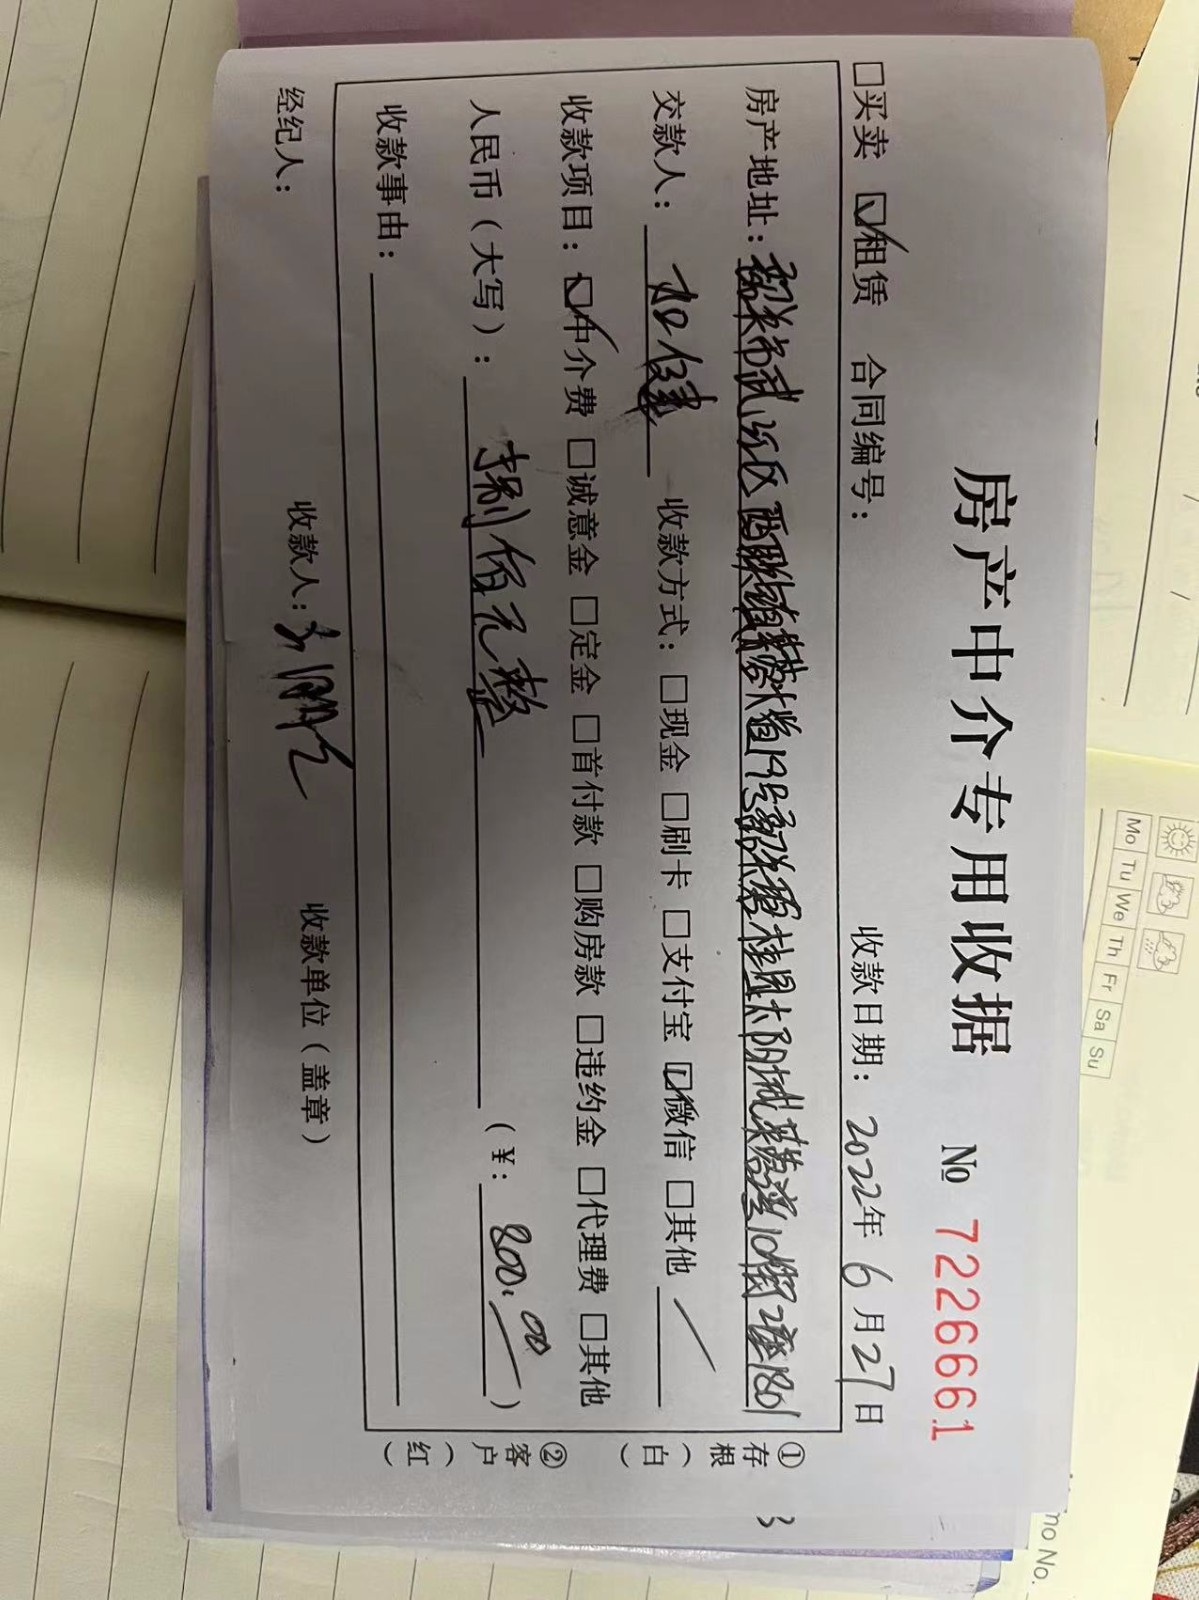 房产中介专用收据 № 7226661
□买卖 ☑租赁 合同编号： 收款日期：2022年6月27日
房产地址：韶关市武江区西联镇 大道19号韶关碧桂园太阳城 10幢2座1801
交款人： 收款方式：□现金 □刷卡 □支付宝 ☑微信 □其他
收款项目：☑中介费 □诚意金 □定金 □首付款 □购房款 □违约金 □代理费 □其他
人民币（大写）：捌佰元整 （¥：800.00）
收款事由：
经纪人： 收款人： 收款单位（盖章）
①存根（白）
②客户（红）
3
Mo Tu We Th Fr Sa Su
no No.